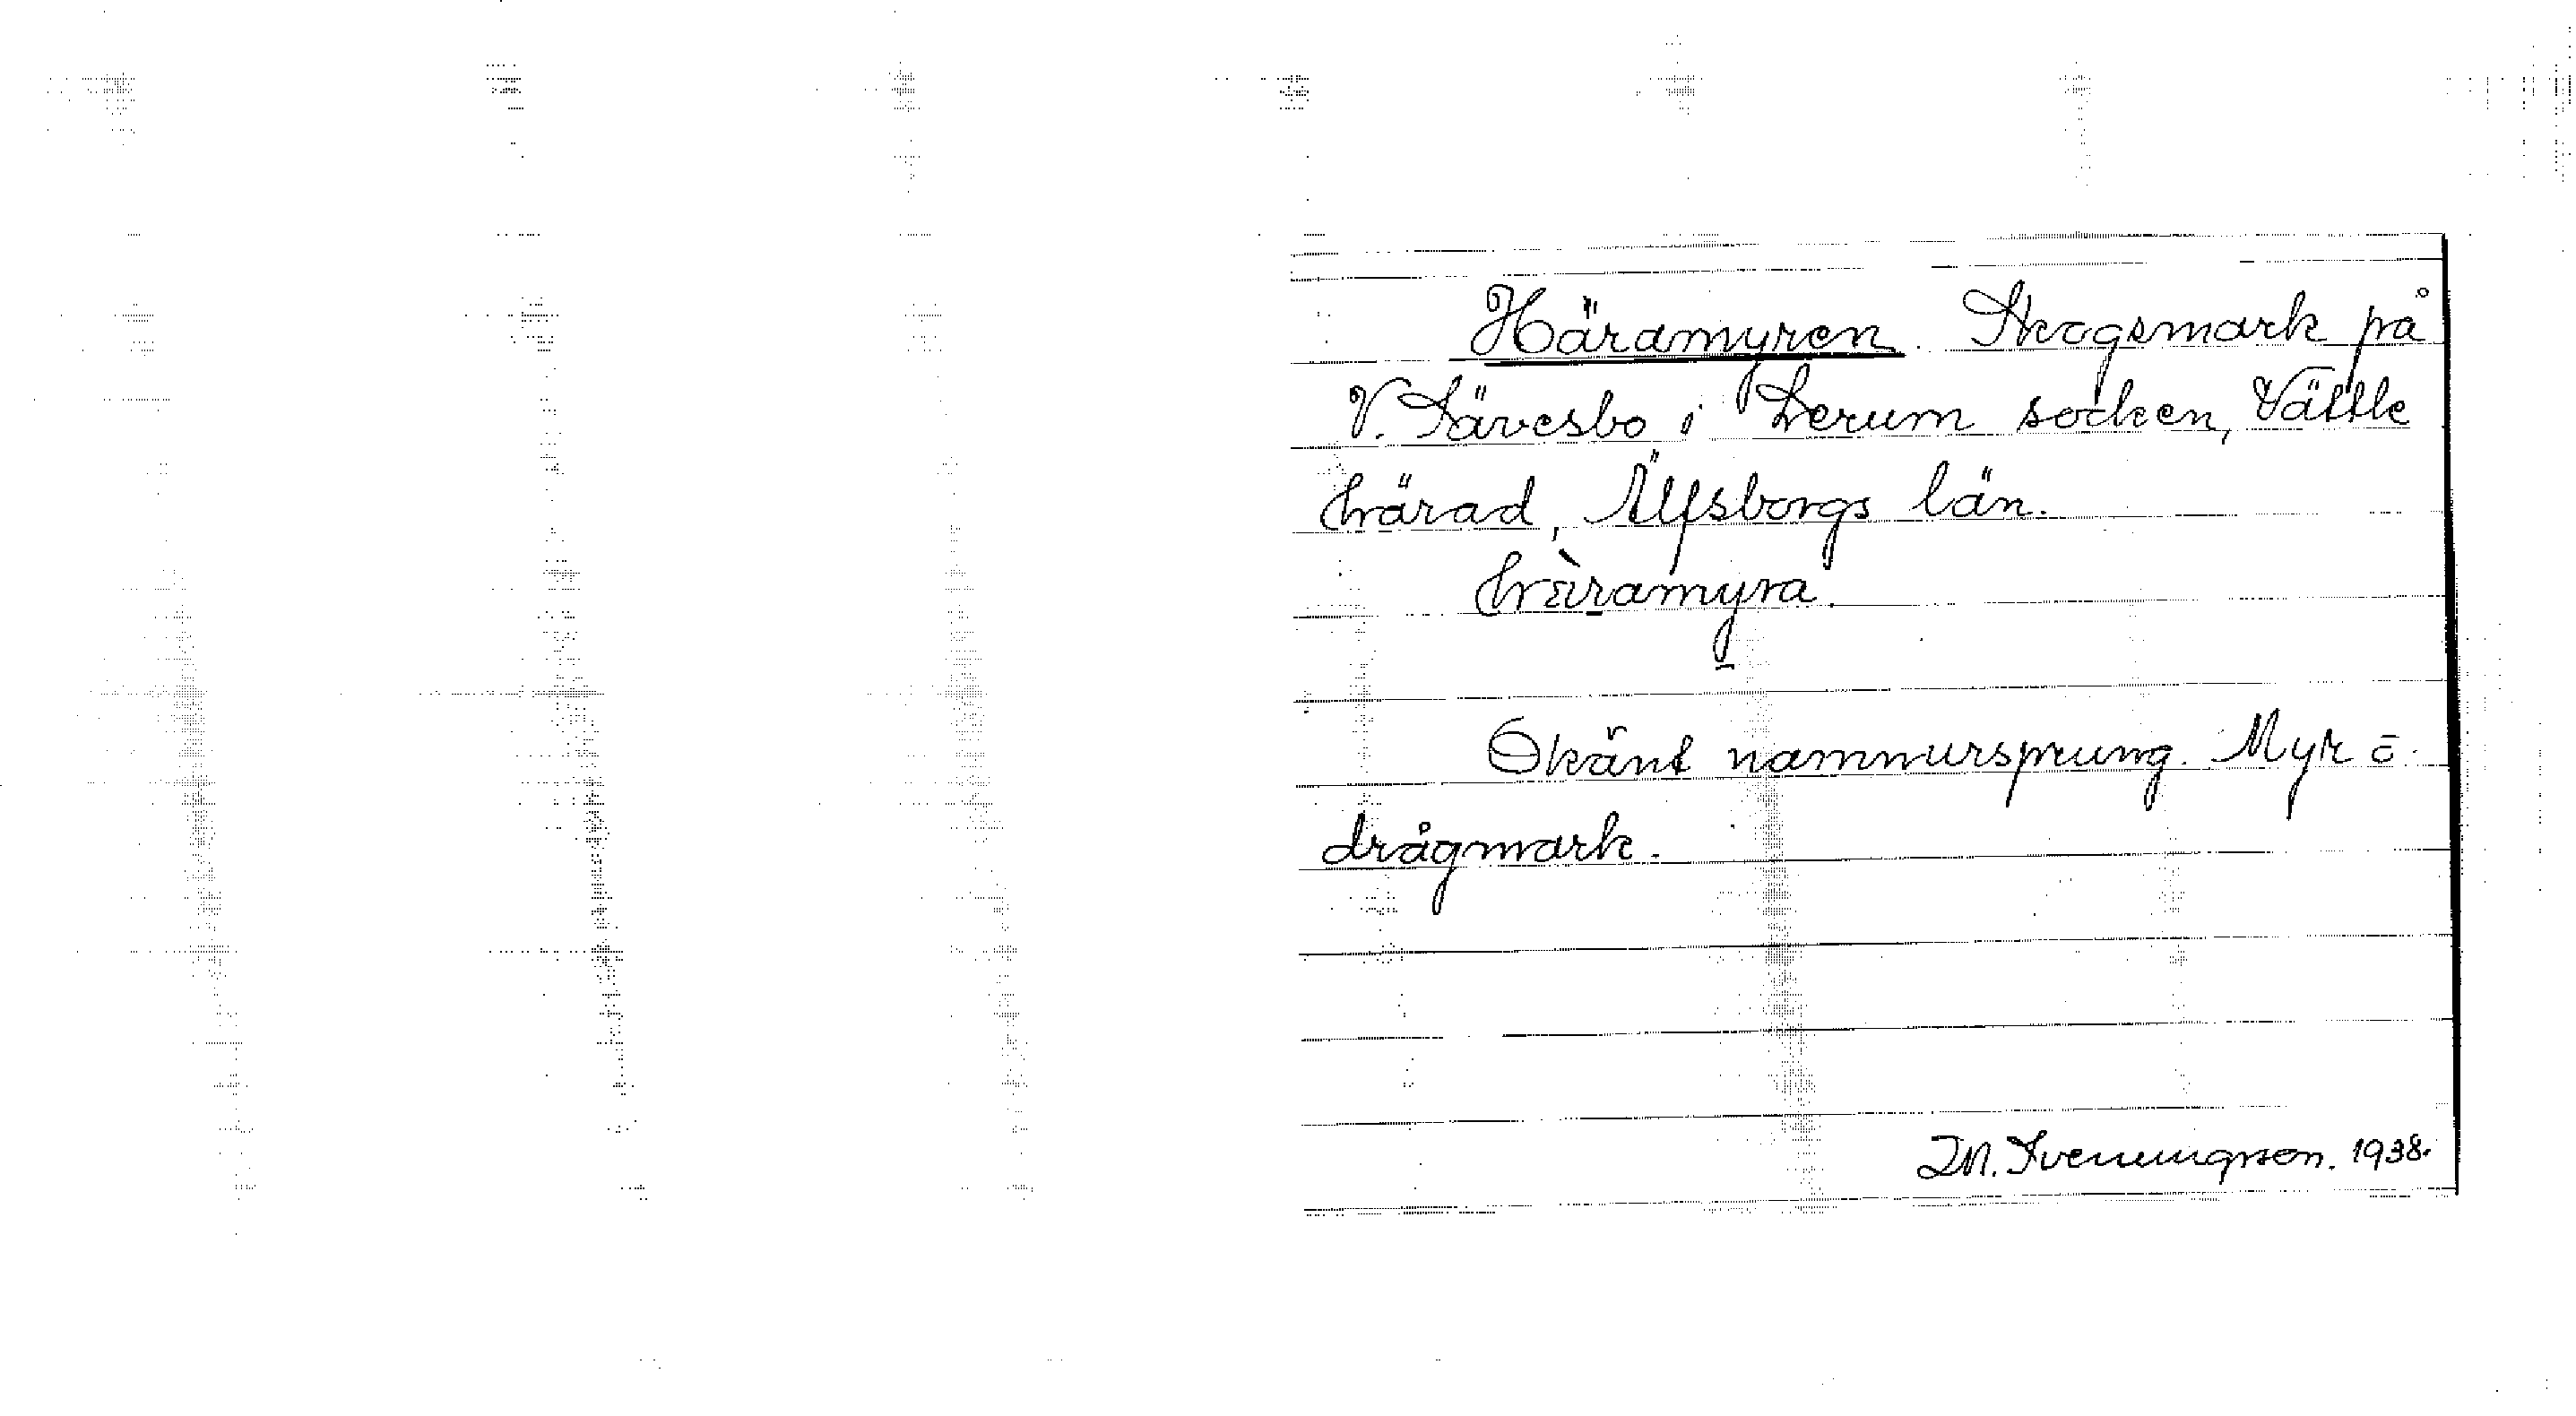 Häramyren. Skogsmark på
V. Sävesbo i Lerum socken, Vättle
härad, Älfsborgs län.
hæ̀ramyra.
Okänt namnursprung. Myr o.
drågmark.
I.M. Svenungson. 1938.